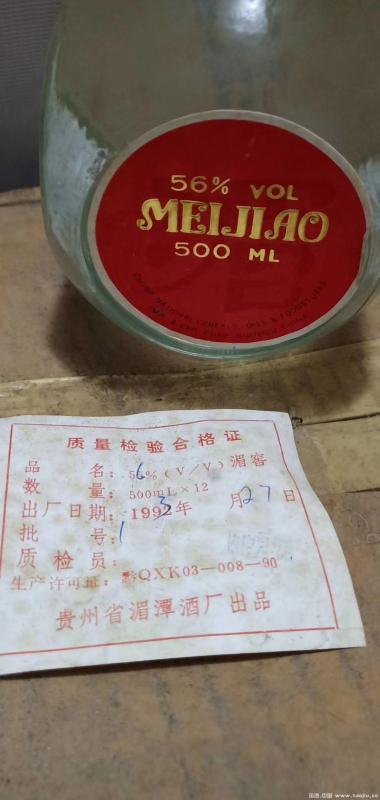 56% VOL
MEIJIAO
500 ML
NATIONAL CEREALS, OILS & FOODSTUFFS
质量检验合格证
品 名：56%（V/V）湄窖
数 量：500mL×12
出厂日期：1993年 月27日
批 号：1
质 检 员：
生产许可证：黔QXK03-008-90
贵州省湄潭酒厂出品
www.tmojiu.cn